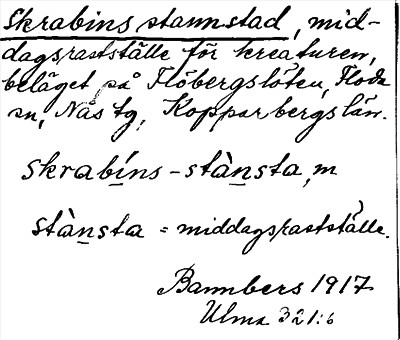 Skrabins stannstad, mid-
dagsrastställe för kreaturen,
beläget på Flöbergslöten, Floda
sn, Näs tg, Kopparbergs län.
skrabíns-stànsta, m
stànsta = middagsrastställe.
Bannbers 1917
Ulma 321:6